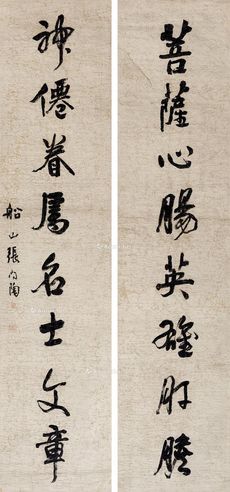 菩薩心腸英雄肝膽
神僊眷屬名士文章
船山張問陶